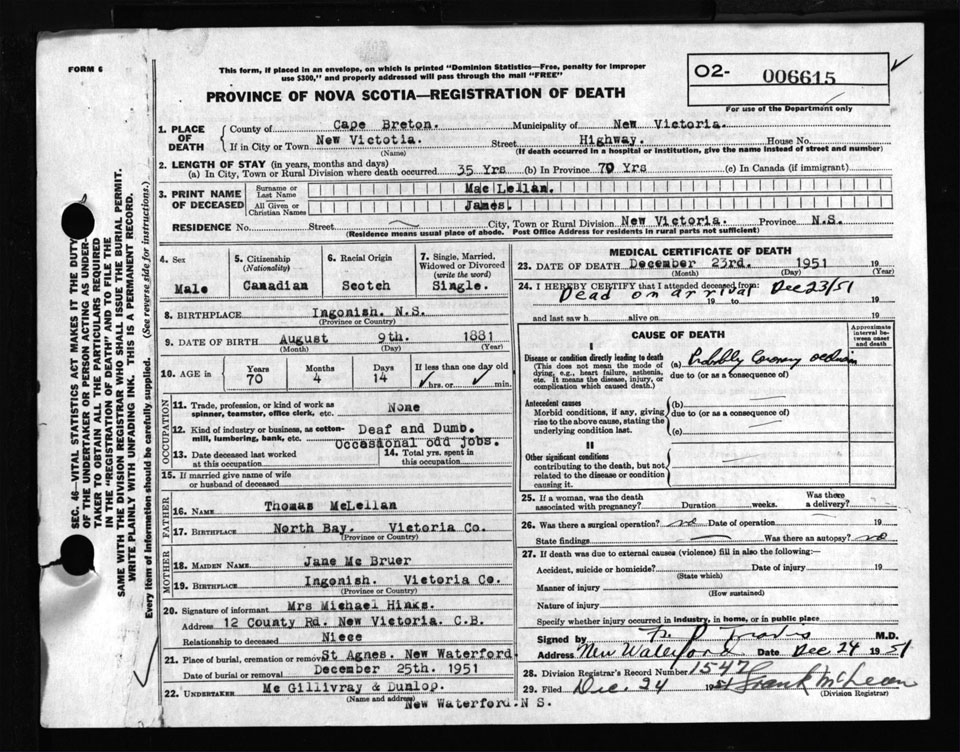 FORM 6
This form, if placed in an envelope, on which is printed "Dominion Statistics—Free, penalty for improper
use $300," and properly addressed will pass through the mail "FREE"
PROVINCE OF NOVA SCOTIA—REGISTRATION OF DEATH
02- 006615
For use of the Department only
SEC. 46—VITAL STATISTICS ACT MAKES IT THE DUTY
OF THE UNDERTAKER OR PERSON ACTING AS UNDER-
TAKER TO OBTAIN ALL THE PARTICULARS REQUIRED
IN THE "REGISTRATION OF DEATH" AND TO FILE THE
SAME WITH THE DIVISION REGISTRAR WHO SHALL ISSUE THE BURIAL PERMIT.
WRITE PLAINLY WITH UNFADING INK. THIS IS A PERMANENT RECORD.
Every item of information should be carefully supplied. (See reverse side for instructions.)
1. PLACE OF DEATH County of Cape Breton. Municipality of New Victoria.
If in City or Town New Victotia. Street Highway. House No.
(Name) (If death occurred in a hospital or institution, give the name instead of street and number)
2. LENGTH OF STAY (in years, months and days)
(a) In City, Town or Rural Division where death occurred 35 Yrs (b) In Province 70 Yrs (c) In Canada (if immigrant)
3. PRINT NAME OF DECEASED Surname or Last Name Mac Lellan.
All Given or Christian Names James.
RESIDENCE No. Street City, Town or Rural Division New Victoria. Province N.S.
(Residence means usual place of abode. Post Office Address for residents in rural parts not sufficient)
4. Sex Male
5. Citizenship (Nationality) Canadian
6. Racial Origin Scotch
7. Single, Married, Widowed or Divorced (write the word) Single.
8. BIRTHPLACE Ingonish. N.S.
(Province or Country)
9. DATE OF BIRTH August 9th. 1881
(Month) (Day) (Year)
10. AGE in Years 70 Months 4 Days 14 If less than one day old hrs. or min.
OCCUPATION
11. Trade, profession, or kind of work as spinner, teamster, office clerk, etc. None
12. Kind of industry or business, as cotton-mill, lumbering, bank, etc. Deaf and Dumb.
Occasional odd jobs.
13. Date deceased last worked at this occupation
14. Total yrs. spent in this occupation
15. If married give name of wife or husband of deceased
FATHER
16. NAME Thomas McLellan
17. BIRTHPLACE North Bay. Victoria Co.
(Province or Country)
MOTHER
18. MAIDEN NAME Jane Mc Bruer
19. BIRTHPLACE Ingonish. Victoria Co.
(Province or Country)
20. Signature of informant Mrs Michael Hinks.
Address 12 County Rd. New Victoria. C.B.
Relationship to deceased Niece
21. Place of burial, cremation or removal St Agnes. New Waterford
Date of burial or removal December 25th. 1951
22. UNDERTAKER Mc Gillivray & Dunlop.
(Name and address)
New Waterford.N S.
MEDICAL CERTIFICATE OF DEATH
23. DATE OF DEATH December 23rd. 1951 19
(Month) (Day) (Year)
24. I HEREBY CERTIFY that I attended deceased from: Dec 23/51
Dead on arrival 19 to 19
and last saw h alive on 19
CAUSE OF DEATH
Approximate interval between onset and death
I
Disease or condition directly leading to death (a) Probably Coronary occlusion
(This does not mean the mode of dying, e.g., heart failure, asthenia, etc. It means the disease, injury, or complication which caused death.)
due to (or as a consequence of)
Antecedent causes (b)
Morbid conditions, if any, giving rise to the above cause, stating the underlying condition last.
due to (or as a consequence of)
(c)
II
Other significant conditions
contributing to the death, but not related to the disease or condition causing it.
25. If a woman, was the death associated with pregnancy? Duration weeks. Was there a delivery?
26. Was there surgical operation? no Date of operation 19
State findings Was there an autopsy? no
27. If death was due to external causes (violence) fill in also the following:—
Accident, suicide or homicide? Date of injury 19
(State which)
Manner of injury
(How sustained)
Nature of injury
Specify whether injury occurred in industry, in home, or in public place
Signed by M.D.
Address New Waterford Date Dec 24 1951
28. Division Registrar's Record Number 1547
29. Filed Dec. 24 1951 Frank McLean
(Division Registrar)